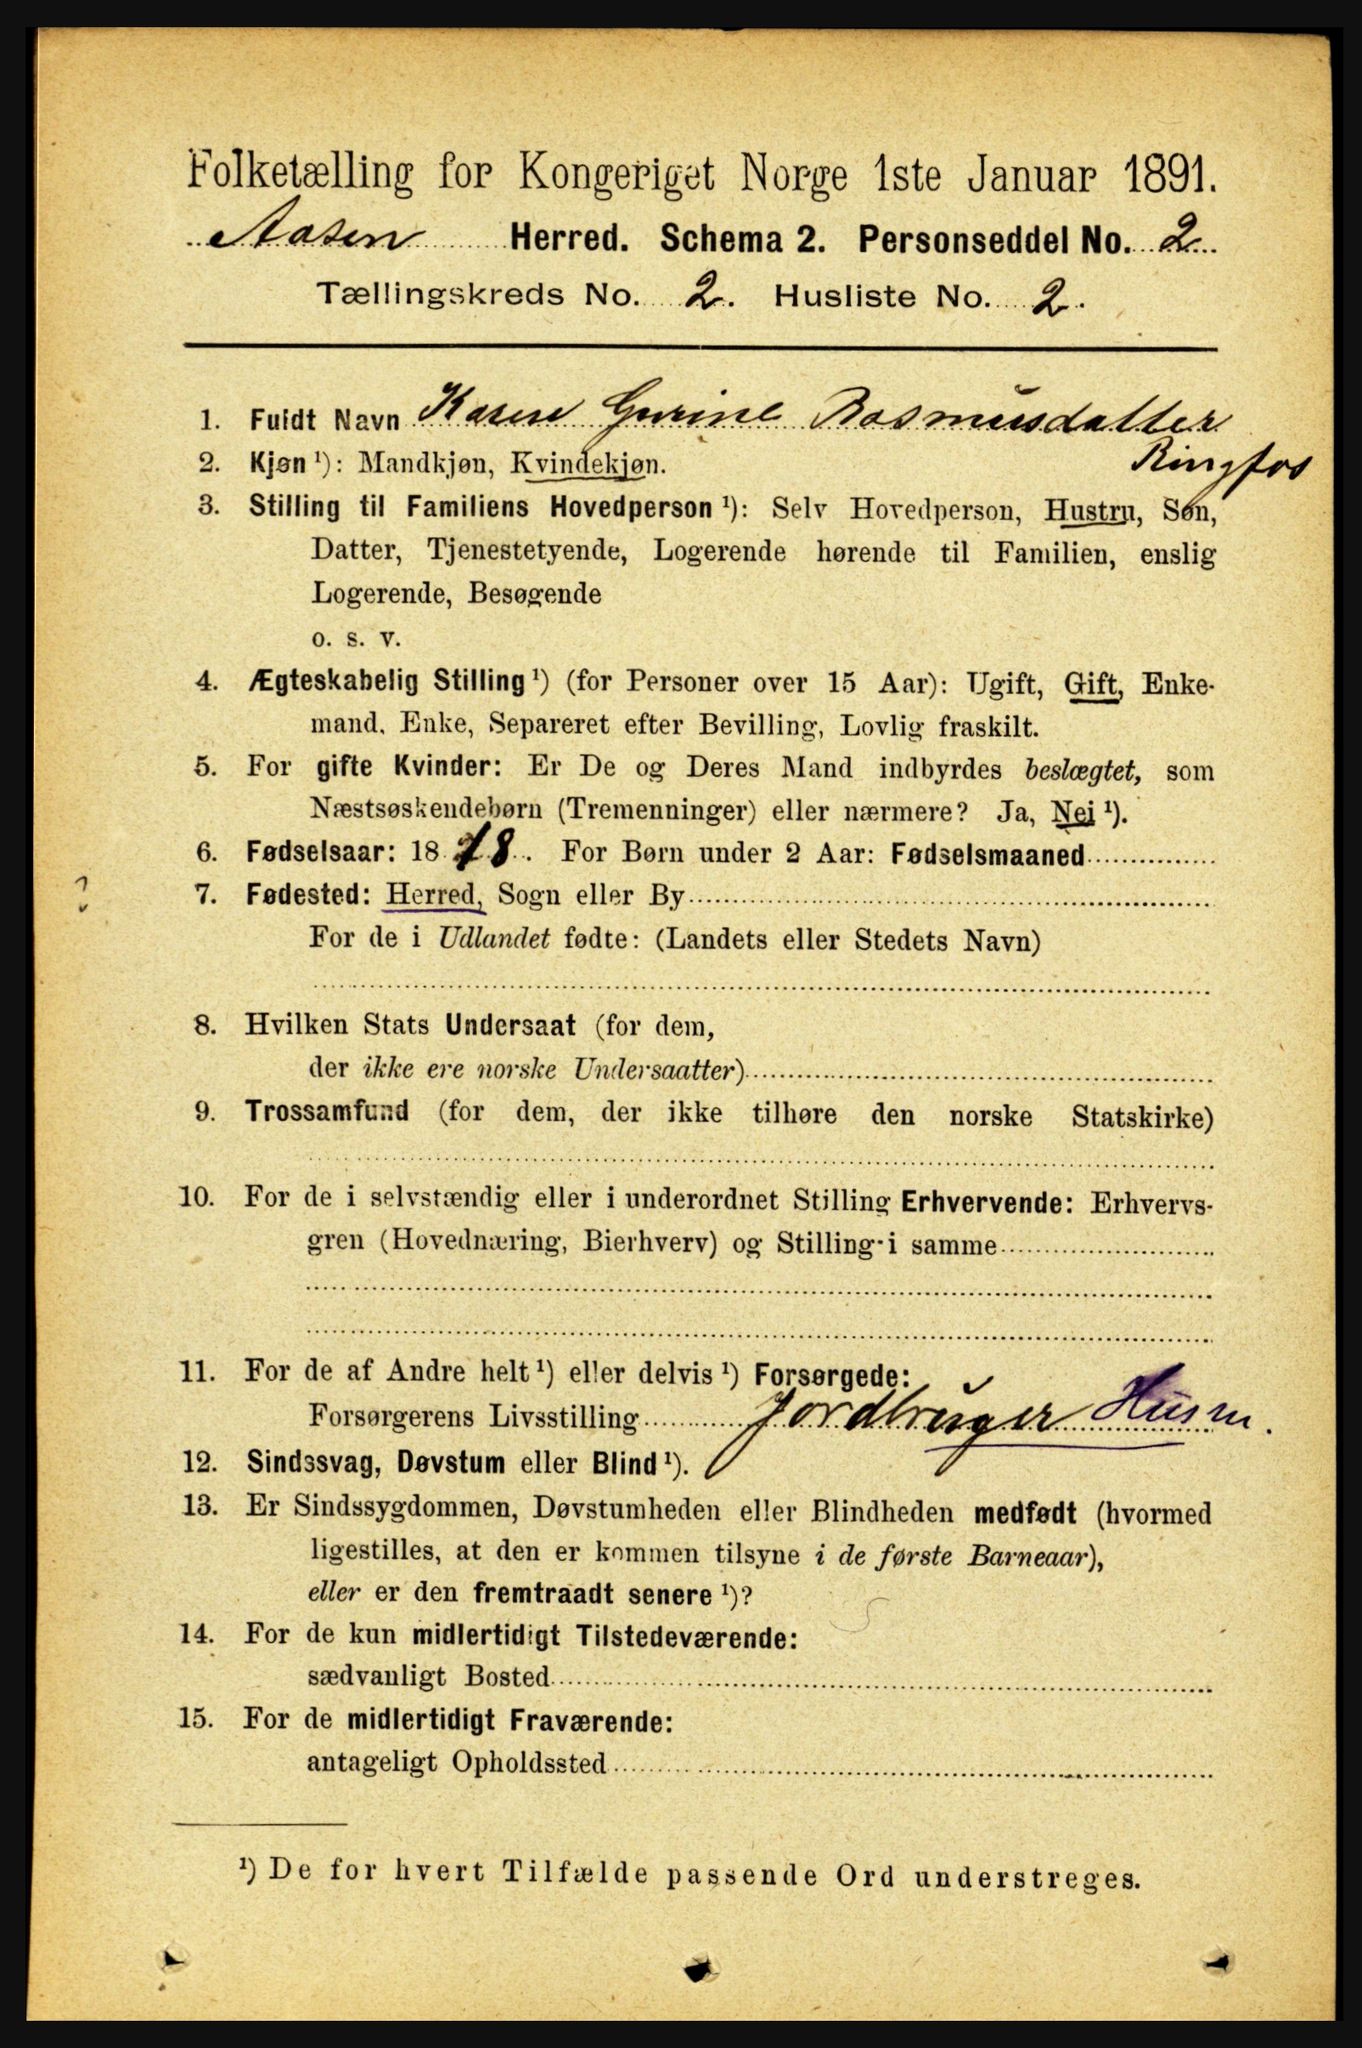 Folketælling for Kongeriget Norge 1ste Januar 1891.
Aasen Herred. Schema 2. Personseddel No. 2
Tællingskreds No. 2. Husliste No. 2.
1. Fuldt Navn Karen Gurine Rasmusdatter
Ringfos
2. Kjøn ¹): Mandkjøn, Kvindekjøn.
3. Stilling til Familiens Hovedperson ¹): Selv Hovedperson, Hustru, Søn,
Datter, Tjenestetyende, Logerende hørende til Familien, enslig
Logerende, Besøgende
o. s. v.
4. Ægteskabelig Stilling ¹) (for Personer over 15 Aar): Ugift, Gift, Enke-
mand, Enke, Separeret efter Bevilling, Lovlig fraskilt.
5. For gifte Kvinder: Er De og Deres Mand indbyrdes beslægtet, som
Næstsøskendebørn (Tremenninger) eller nærmere? Ja, Nei ¹).
6. Fødselsaar: 18 . For Børn under 2 Aar: Fødselsmaaned
7. Fødested: Herred, Sogn eller By
For de i Udlandet fødte: (Landets eller Stedets Navn)
8. Hvilken Stats Undersaat (for dem,
der ikke ere norske Undersaatter)
9. Trossamfund (for dem, der ikke tilhøre den norske Statskirke)
10. For de i selvstændig eller i underordnet Stilling Erhvervende: Erhvervs-
gren (Hovednæring, Bierhverv) og Stilling i samme
11. For de af Andre helt ¹) eller delvis ¹) Forsørgede:
Forsørgerens Livsstilling Jordbruger Husm.
12. Sindssvag, Døvstum eller Blind ¹).
13. Er Sindssygdommen, Døvstumheden eller Blindheden medfødt (hvormed
ligestilles, at den er kommen tilsyne i de første Barneaar),
eller er den fremtraadt senere ¹)?
14. For de kun midlertidigt Tilstedeværende:
sædvanligt Bosted
15. For de midlertidigt Fraværende:
antageligt Opholdssted
¹) De for hvert Tilfælde passende Ord understreges.